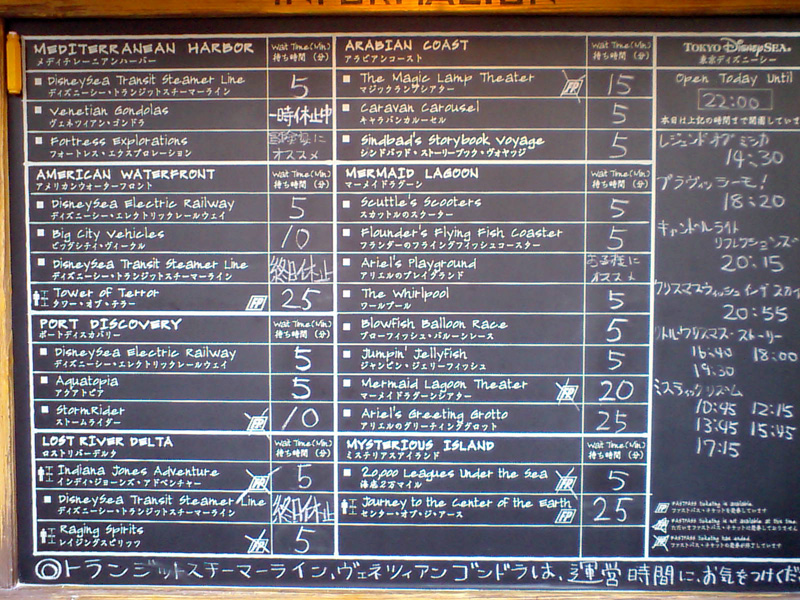 INFORMATION
MEDITERRANEAN HARBOR
メディテレーニアンハーバー
Wait Time (Min)
待ち時間 (分)
DisneySea Transit Steamer Line
ディズニーシー・トランジットスチーマーライン
5
Venetian Gondolas
ヴェネツィアン・ゴンドラ
一時休止中
Fortress Explorations
フォートレス・エクスプロレーション
冒険家に
オススメ
AMERICAN WATERFRONT
アメリカンウォーターフロント
Wait Time (Min)
待ち時間 (分)
DisneySea Electric Railway
ディズニーシー・エレクトリックレールウェイ
5
Big City Vehicles
ビッグシティ・ヴィークル
10
DisneySea Transit Steamer Line
ディズニーシー・トランジットスチーマーライン
終日休止
Tower of Terror
タワー・オブ・テラー
FP
25
PORT DISCOVERY
ポートディスカバリー
Wait Time (Min)
待ち時間 (分)
DisneySea Electric Railway
ディズニーシー・エレクトリックレールウェイ
5
Aquatopia
アクアトピア
5
StormRider
ストームライダー
FP
10
LOST RIVER DELTA
ロストリバーデルタ
Wait Time (Min)
待ち時間 (分)
Indiana Jones Adventure
インディ・ジョーンズ・アドベンチャー
FP
5
DisneySea Transit Steamer Line
ディズニーシー・トランジットスチーマーライン
終日休止
Raging Spirits
レイジングスピリッツ
FP
5
ARABIAN COAST
アラビアンコースト
Wait Time (Min)
待ち時間 (分)
The Magic Lamp Theater
マジックランプシアター
FP
15
Caravan Carousel
キャラバンカルーセル
5
Sindbad's Storybook Voyage
シンドバッド・ストーリーブック・ヴォヤッジ
5
MERMAID LAGOON
マーメイドラグーン
Wait Time (Min)
待ち時間 (分)
Scuttle's Scooters
スカットルのスクーター
5
Flounder's Flying Fish Coaster
フランダーのフライングフィッシュコースター
5
Ariel's Playground
アリエルのプレイグラウンド
オススメ
The Whirlpool
ワールプール
5
Blowfish Balloon Race
ブローフィッシュ・バルーンレース
5
Jumpin' Jellyfish
ジャンピン・ジェリーフィッシュ
5
Mermaid Lagoon Theater
マーメイドラグーンシアター
FP
20
Ariel's Greeting Grotto
アリエルのグリーティンググロット
25
MYSTERIOUS ISLAND
ミステリアスアイランド
Wait Time (Min)
待ち時間 (分)
20,000 Leagues Under the Sea
海底2万マイル
FP
5
Journey to the Center of the Earth
センター・オブ・ジ・アース
FP
25
TOKYO DisneySEA
東京ディズニーシー
Open Today Until
22:00
本日は上記の時間まで開園しています
レジェンドオブミシカ
14:30
ブラヴィッシーモ!
18:20
キャンドルライト
リフレクションズ
20:15
クリスマスウィッシュインザスカイ
20:55
リトルクリスマス・ストーリー
16:40 18:00
19:30
ミスティックリズム
10:45 12:15
13:45 15:45
17:15
FP FASTPASS ticketing is available.
ファストパス・チケットを発券しています
FASTPASS ticketing is not available at this time.
ただいまファストパス・チケットは発券しておりません
FASTPASS ticketing has ended.
ファストパス・チケットの発券が終了しています
◎トランジットスチーマーライン、ヴェネツィアンゴンドラは、運営時間に、お気をつけくだ